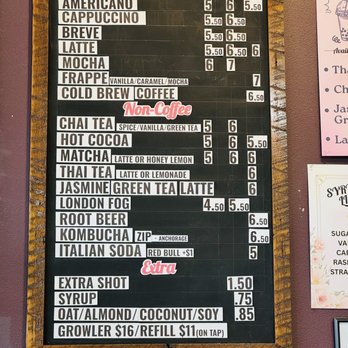 AMERICANO 5 6 5.50
CAPPUCCINO 5.50 6.50
BREVE 5.50 6.50
LATTE 5.50 6.50 6
MOCHA 6 7
FRAPPE VANILLA/CARAMEL/MOCHA 7
COLD BREW COFFEE 6.50
Non-Coffee
CHAI TEA SPICE/VANILLA/GREEN TEA 5 6
HOT COCOA 5 6 5.50
MATCHA LATTE OR HONEY LEMON 5 6 6
THAI TEA LATTE OR LEMONADE 6
JASMINE GREEN TEA LATTE 6
LONDON FOG 4.50 5.50
ROOT BEER 6.50
KOMBUCHA ZIP - ANCHORAGE 6.50
ITALIAN SODA RED BULL +$1 5
Extra
EXTRA SHOT 1.50
SYRUP .75
OAT/ALMOND/COCONUT/SOY .85
GROWLER $16/REFILL $11 (ON TAP)